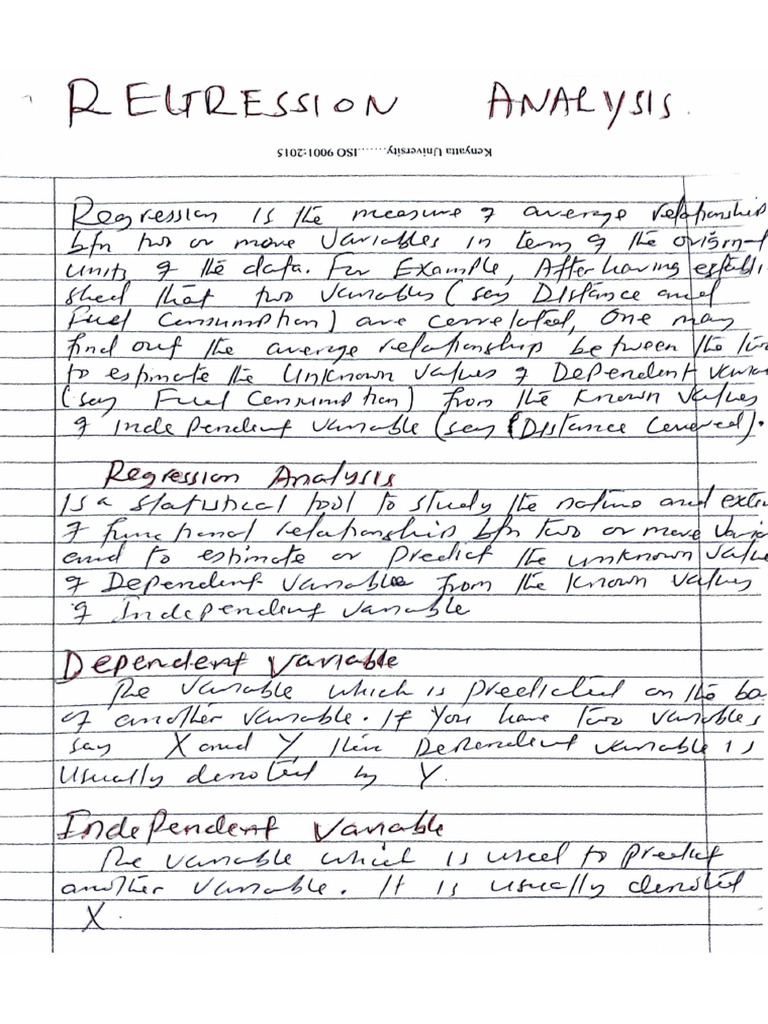 REGRESSION ANALYSIS.
Kenyatta University.......ISO 9001:2015
Regression is the measure of average relationship
btn two or more variables in term of the origin
units of the data. For Example, After having establi
shed that two variables (say Distance and
Fuel Consumption) are correlated, one may
find out the average relationship between the
to estimate the Unknown values of Dependent
(say Fuel Consumption) from the Known values
of Independent variable (say (Distance Covered).
Regression Analysis
Is a statistical tool to study the nature and
of functional relationship btn two or more
and to estimate or predict the unknown
of Dependent variable from the Known values
of Independent variable
Dependent variable
The variable which is predicted on the ba
of another variable. If you have two variables
say X and Y, then Dependent variable is
Usually denoted by Y.
Independent variable
The variable which is used to predict
another variable. It is usually denoted
X.